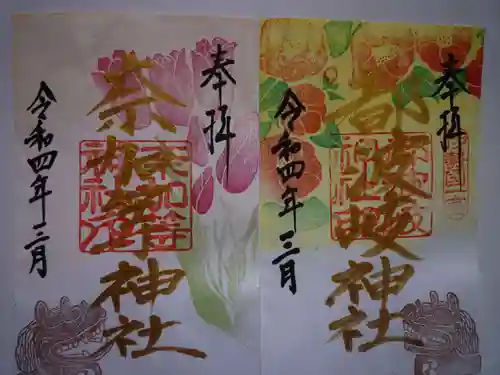 奉拝
奈加等神社
令和四年三月
奉拝
都波岐神社
令和四年三月